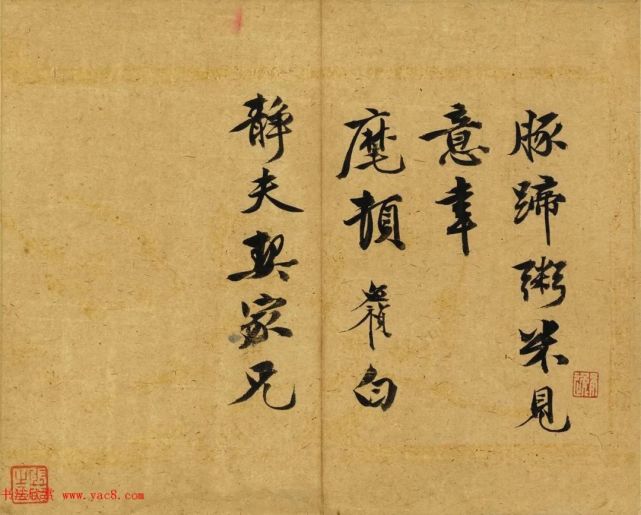 豚蹄粥米見
意幸
麾頓 白
靜夫契家兄
书法欣赏 www.yac8.com